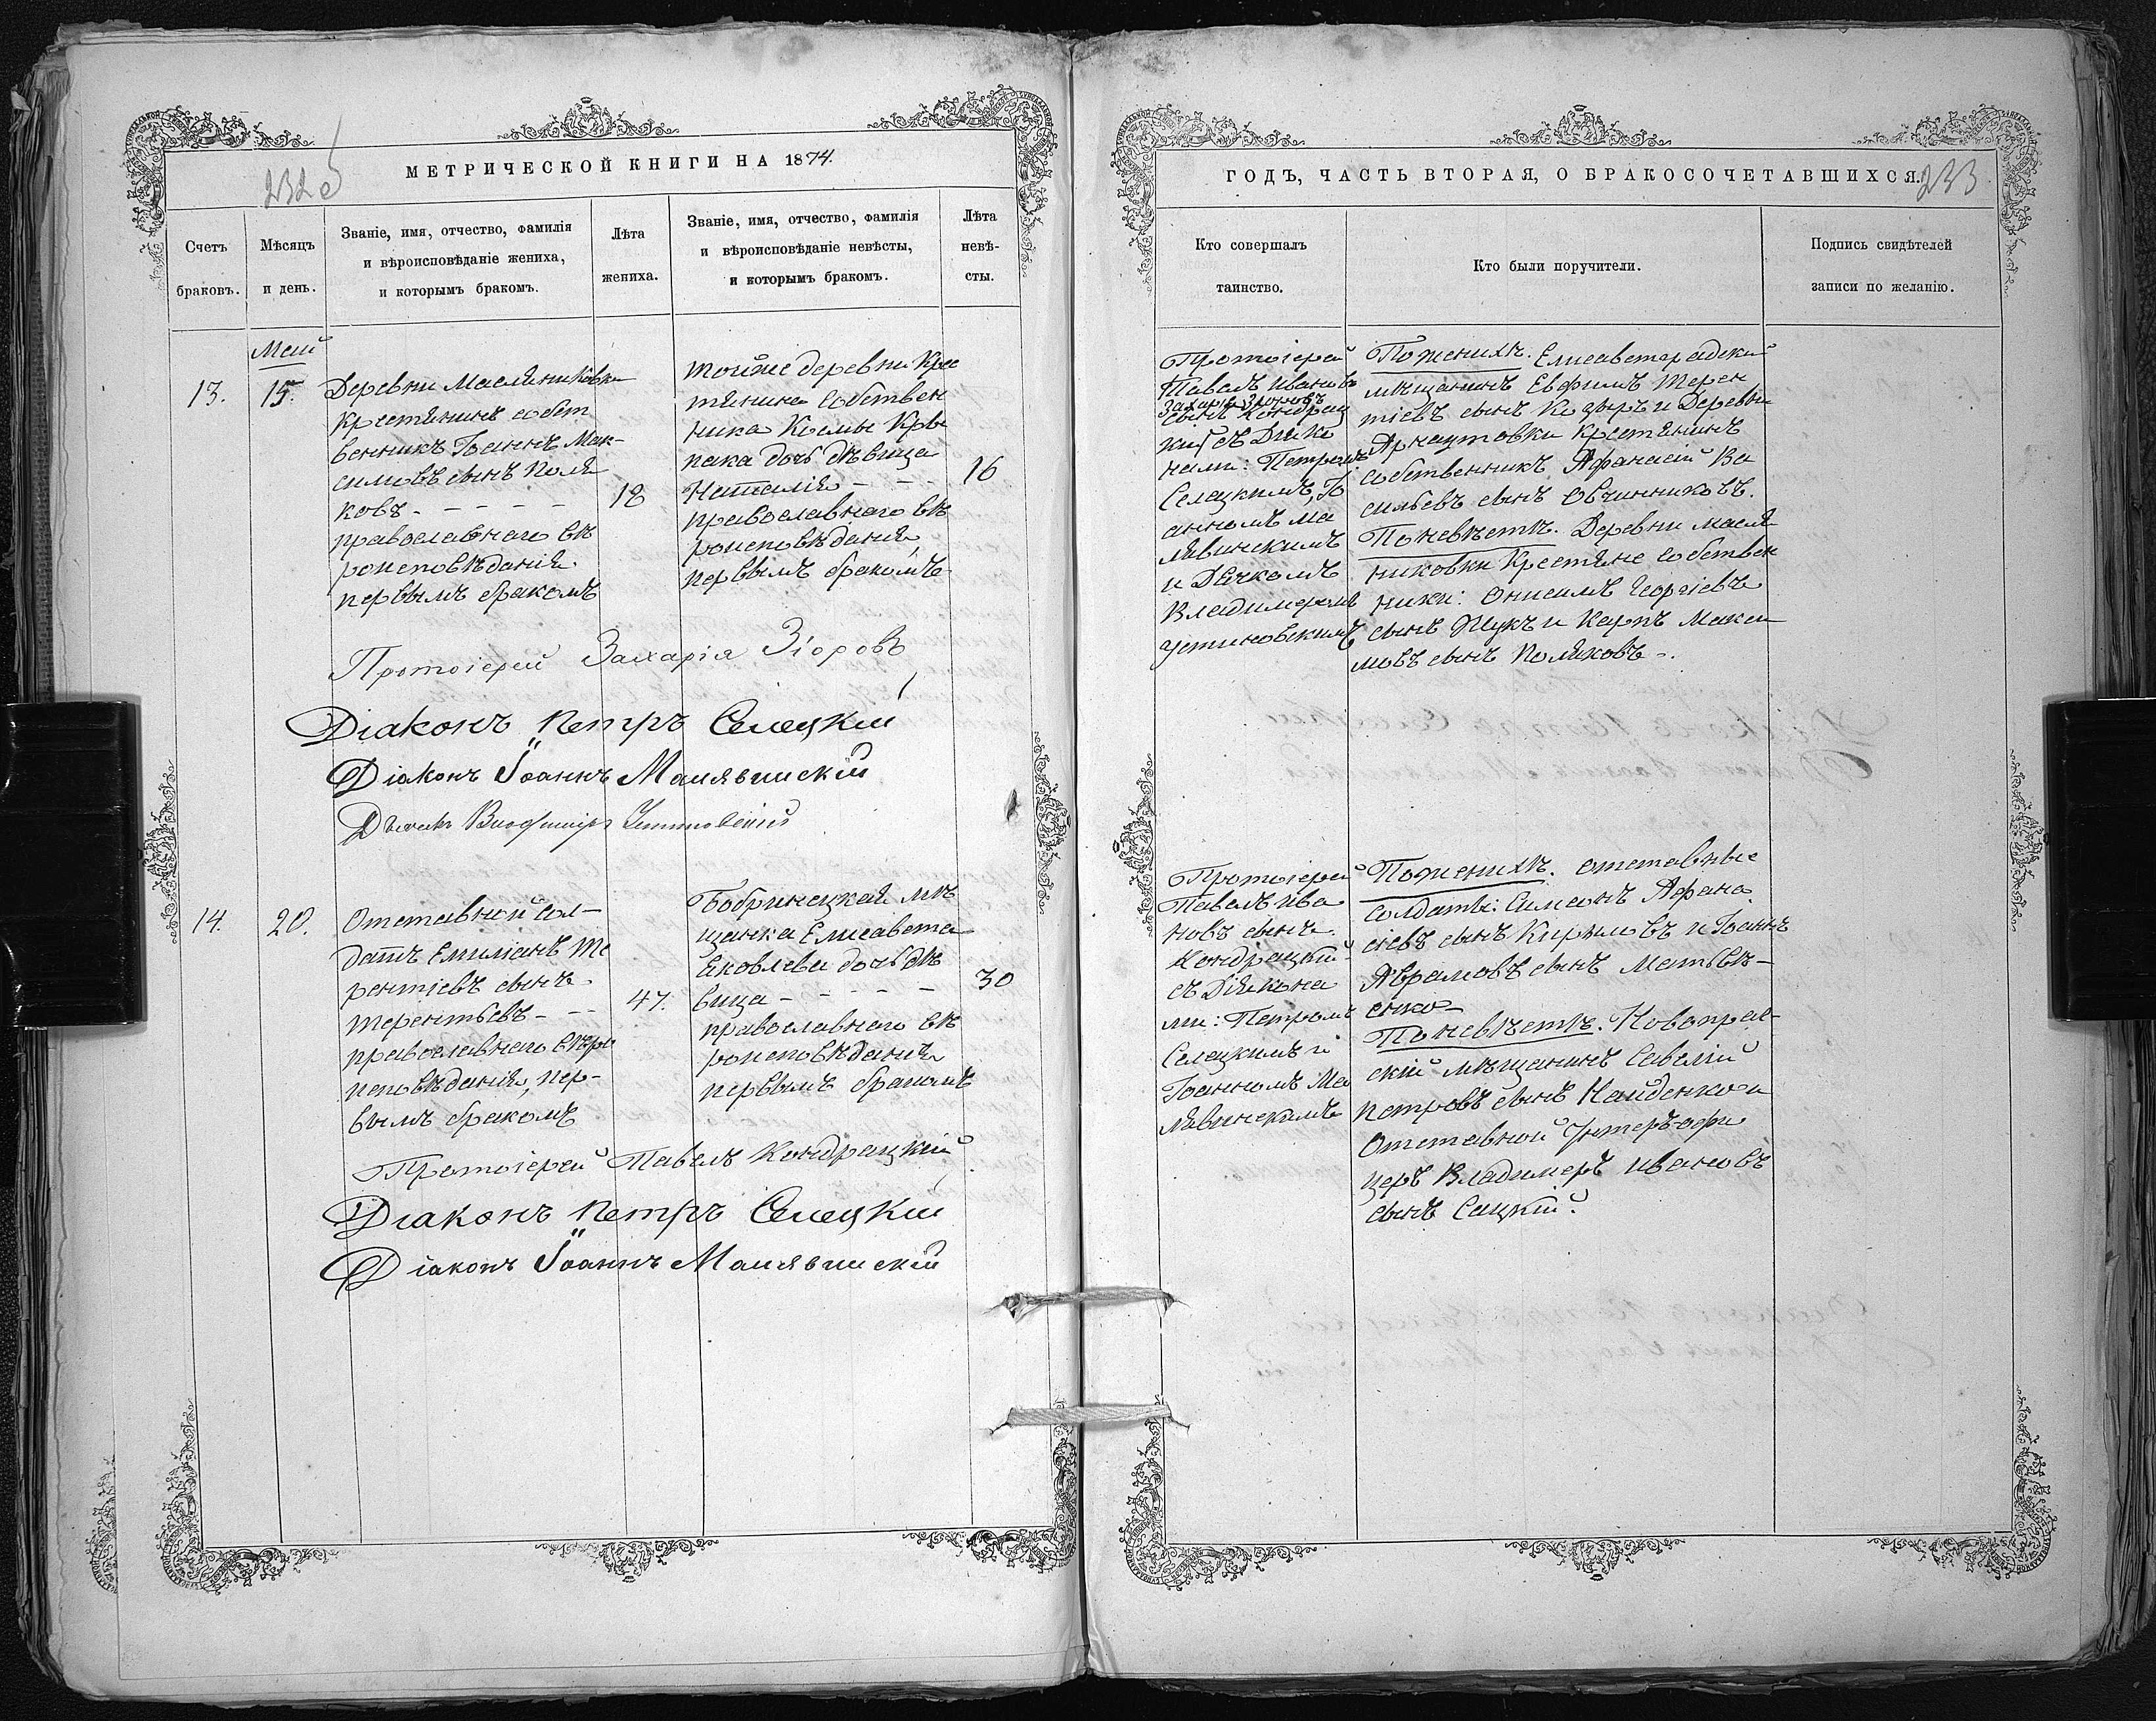 МЕТРИЧЕСКОЙ КНИГИ НА 1874.
232 об
Счетъ браковъ.
Мѣсяцъ и день.
Званіе, имя, отчество, фамилія
и вѣроисповѣданіе жениха,
и которымъ бракомъ.
Лѣта
жениха.
Званіе, имя, отчество, фамилія
и вѣроисповѣданіе невѣсты,
и которымъ бракомъ.
Лѣта
невѣ-
сты.
Май
13.
15.
Деревни Масляниковки
Крестянинъ собст
венникъ Іоаннъ Мак-
симовъ сынъ Поля
ковъ - - - - -
православнаго вѣ
роисповѣданія.
первымъ бракомъ
18
тойже деревни Крес
тянина собствен
ника Космы Кры
пака дочь дѣвица
Наталія - - -
православнаго вѣ
роисповѣданія,
первымъ бракомъ
16
Протоіерей Захарія Зіоровъ
Діаконъ Петръ Селецкій
Діаконъ Іоаннъ Малявинскій
Дьячокъ Владиміръ Устиновскій
14.
20.
Отставной сол-
датъ Емиліанъ Те
рентіевъ сынъ
Терентьевъ - - -
православнаго вѣро
исповѣданія, пер-
вымъ бракомъ
47.
Бобринецкая мѣ
щанка Елисавета
Яковлева дочь дѣ
вица - - - - -
православнаго вѣ
роисповѣданія
первымъ бракомъ
30
Протоіерей Павелъ Кондрацкій
Діаконъ Петръ Селецкій
Діаконъ Іоаннъ Малявинскій
ГОДЪ, ЧАСТЬ ВТОРАЯ, О БРАКОСОЧЕТАВШИХСЯ.
233
Кто совершалъ
таинство.
Кто были поручители.
Подпись свидѣтелей
записи по желанію.
Протоіерей
Павелъ Ивановъ
Захарія Зіоровъ
сынъ Кондрац
кій съ Діако
нами: Петромъ
Селецкимъ, Іо
анномъ Ма
лявинскимъ
и Дячкомъ
Владимиромъ
Устиновскимъ
По женихѣ. Елисаветградскій
мѣщанинъ Евфимъ Терен
тіевъ сынъ Козыръ и Деревни
Арнаутовки крестянинъ
собственникъ Афанасій Ва
сильевъ сынъ Овчинниковъ.
По невѣстѣ. Деревни Масля
никовки Крестяне собствен
ники: Онисимъ Георгіевъ
сынъ Жукъ и Карпъ Макси
мовъ сынъ Поляковъ -.
Протоіерей
Павелъ Ива
новъ сынъ
Кондрацкій
съ Діакона
ми: Петромъ
Селецкимъ и
Іоанномъ Ма
лявинскимъ
По женихѣ. отставные
солдаты: Симеонъ Афана
сіевъ сынъ Кириловъ и Іоаннъ
Аврамовъ сынъ Матвѣ-
енко -
По невѣстѣ. Новопраж-
скій мѣщанинъ Савелій
Петровъ сынъ Найденко и
Отставной Унтеръ-офи
церъ Владимеръ Ивановъ
сынъ Сацкій.